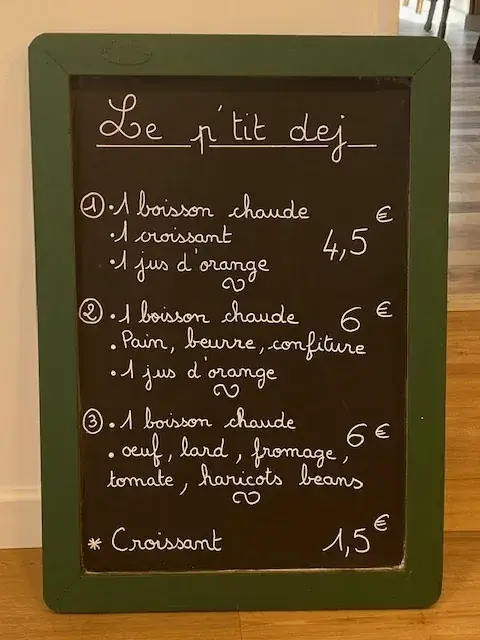 Le p'tit dej
① • 1 boisson chaude
• 1 croissant 4,5 €
• 1 jus d'orange
② • 1 boisson chaude 6 €
• Pain, beurre, confiture
• 1 jus d'orange
③ • 1 boisson chaude
6 €
• oeuf, lard, fromage,
tomate, haricots beans
* Croissant 1,5 €